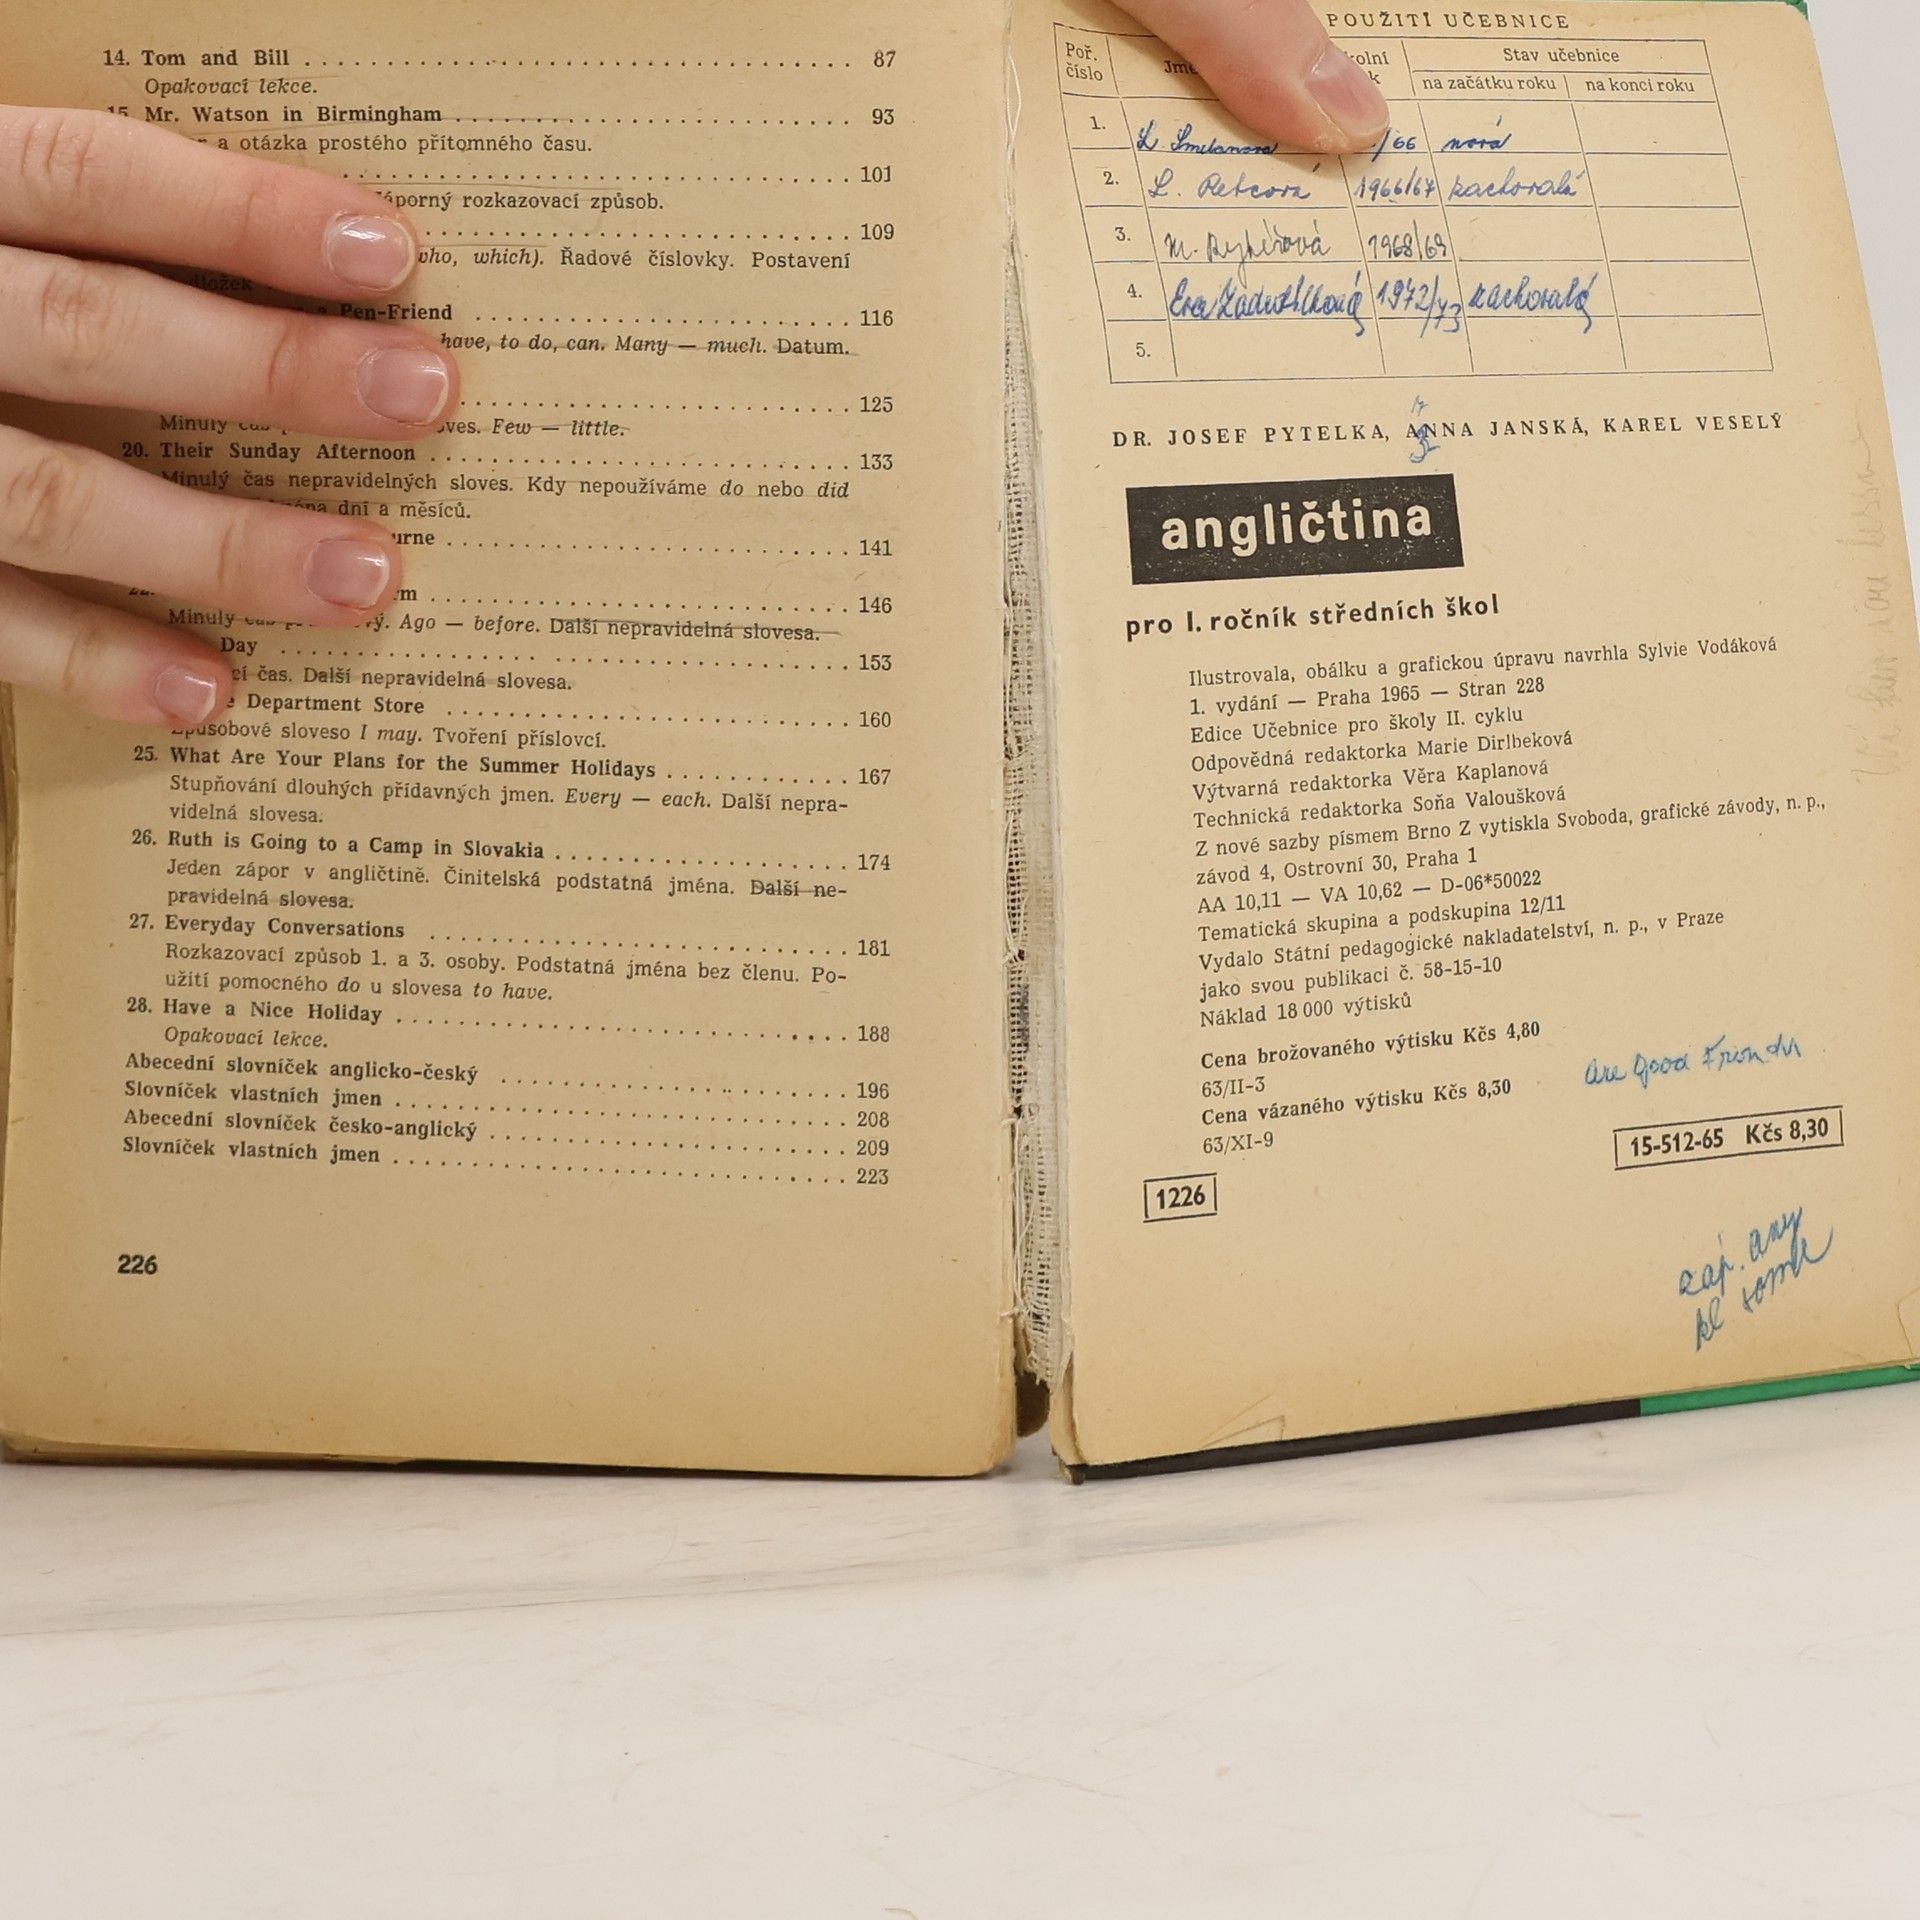 14. Tom and Bill 87
Opakovací lekce.
15. Mr. Watson in Birmingham 93
a otázka prostého přítomného času.
101
rozkazovací způsob.
109
which). Řadové číslovky. Postavení
Pen-Friend 116
have, to do, can. Many — much. Datum.
125
Few — little.
20. Their Sunday Afternoon 133
Minulý čas nepravidelných sloves. Kdy nepoužíváme do nebo did
dní a měsíců.
141
146
Minulý Ago — before. Další nepravidelná slovesa.
Day 153
čas. Další nepravidelná slovesa.
Department Store 160
Způsobové sloveso I may. Tvoření příslovcí.
25. What Are Your Plans for the Summer Holidays 167
Stupňování dlouhých přídavných jmen. Every — each. Další nepra-
videlná slovesa.
26. Ruth is Going to a Camp in Slovakia 174
Jeden zápor v angličtině. Činitelská podstatná jména. Další ne-
pravidelná slovesa.
27. Everyday Conversations 181
Rozkazovací způsob 1. a 3. osoby. Podstatná jména bez členu. Po-
užití pomocného do u slovesa to have.
28. Have a Nice Holiday 188
Opakovací lekce.
Abecední slovníček anglicko-český 196
Slovníček vlastních jmen 208
Abecední slovníček česko-anglický 209
Slovníček vlastních jmen 223
226
POUŽITÍ UČEBNICE
Poř. číslo Stav učebnice
na začátku roku na konci roku
1. L. /66 nová
2. L. 1966/67 zachovalá
3. M. 1968/69
4. Eva 1972/73 zachovalá
5.
DR. JOSEF PYTELKA, ANNA JANSKÁ, KAREL VESELÝ
angličtina
pro I. ročník středních škol
Ilustrovala, obálku a grafickou úpravu navrhla Sylvie Vodáková
1. vydání — Praha 1965 — Stran 228
Edice Učebnice pro školy II. cyklu
Odpovědná redaktorka Marie Dirlbeková
Výtvarná redaktorka Věra Kaplanová
Technická redaktorka Soňa Valoušková
Z nové sazby písmem Brno Z vytiskla Svoboda, grafické závody, n. p.,
závod 4, Ostrovní 30, Praha 1
AA 10,11 — VA 10,62 — D-06*50022
Tematická skupina a podskupina 12/11
Vydalo Státní pedagogické nakladatelství, n. p., v Praze
jako svou publikaci č. 58-15-10
Náklad 18 000 výtisků
Cena brožovaného výtisku Kčs 4,80
63/II-3
Cena vázaného výtisku Kčs 8,30
63/XI-9
are Good
15-512-65 Kčs 8,30
1226
záp. any
kl some